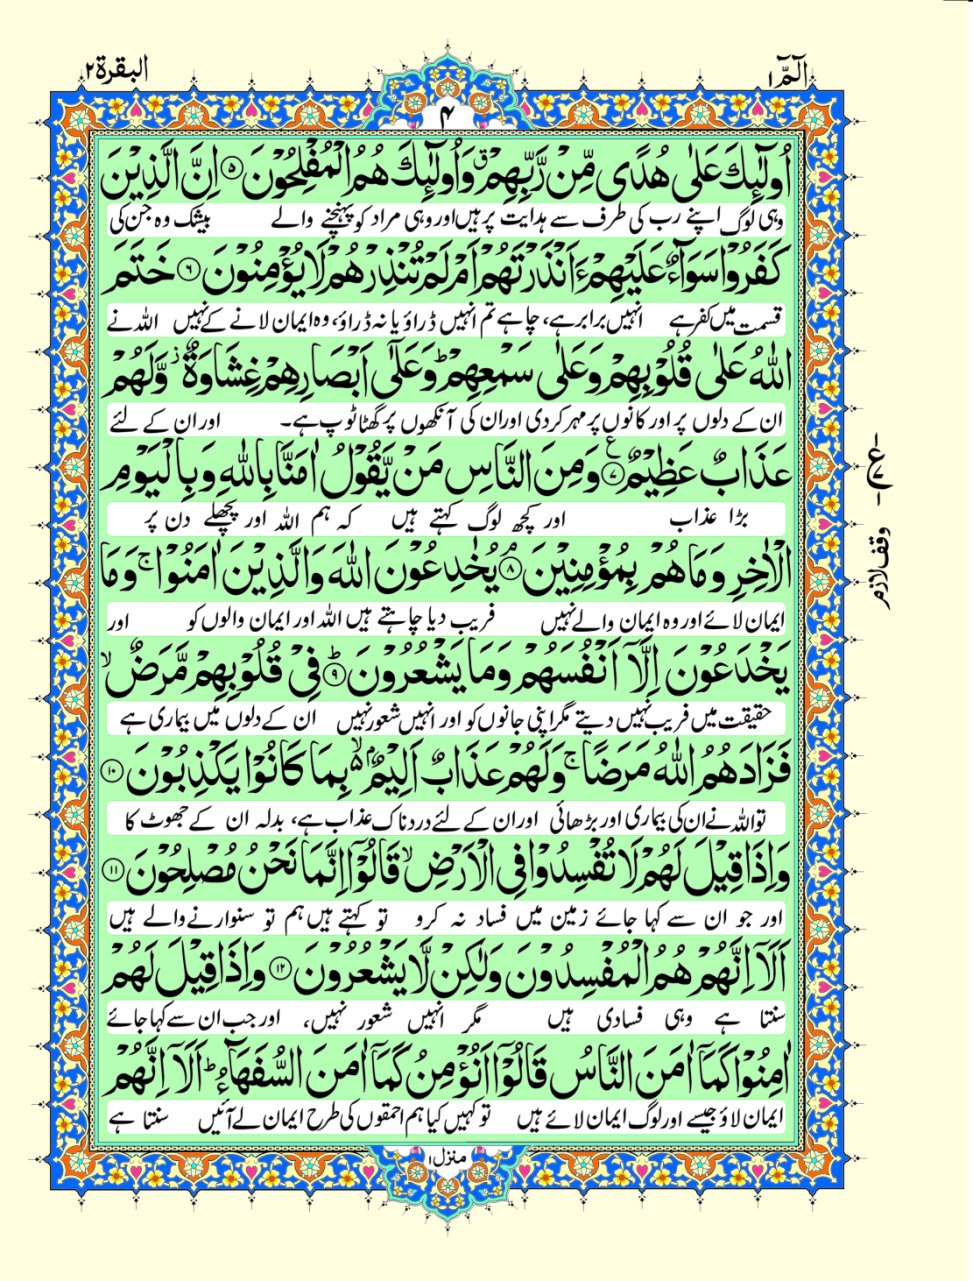 الٓمّٓ ۱
البقرۃ ۲
۴
اُولٰٓئِكَ عَلٰى هُدًى مِّنْ رَّبِّهِمْ ۗ وَاُولٰٓئِكَ هُمُ الْمُفْلِحُوْنَ ۝۵ اِنَّ الَّذِيْنَ
وہی لوگ اپنے رب کی طرف سے ہدایت پر ہیں اور وہی مراد کو پہنچنے والے بیشک وہ جن کی
كَفَرُوْا سَوَآءٌ عَلَيْهِمْ ءَاَنْذَرْتَهُمْ اَمْ لَمْ تُنْذِرْهُمْ لَا يُؤْمِنُوْنَ ۝۶ خَتَمَ
قسمت میں کفر ہے انہیں برابر ہے، چاہے تم انہیں ڈراؤ یا نہ ڈراؤ، وہ ایمان لانے کے نہیں اللہ نے
اللّٰهُ عَلٰى قُلُوْبِهِمْ وَعَلٰى سَمْعِهِمْ ؕ وَعَلٰٓى اَبْصَارِهِمْ غِشَاوَةٌ ؗ وَّلَهُمْ
ان کے دلوں پر اور کانوں پر مہر کردی اور ان کی آنکھوں پر گھٹا ٹوپ ہے۔ اور ان کے لئے
عَذَابٌ عَظِيْمٌ ۝۷ ع وَمِنَ النَّاسِ مَنْ يَّقُوْلُ اٰمَنَّا بِاللّٰهِ وَبِالْيَوْمِ
بڑا عذاب اور کچھ لوگ کہتے ہیں کہ ہم اللہ اور پچھلے دن پر
الْاٰخِرِ وَمَا هُمْ بِمُؤْمِنِيْنَ ۝۸ۘ يُخٰدِعُوْنَ اللّٰهَ وَالَّذِيْنَ اٰمَنُوْا ۚ وَمَا
ایمان لائے اور وہ ایمان والے نہیں فریب دیا چاہتے ہیں اللہ اور ایمان والوں کو اور
يَخْدَعُوْنَ اِلَّاۤ اَنْفُسَهُمْ وَمَا يَشْعُرُوْنَ ۝۹ؕ فِيْ قُلُوْبِهِمْ مَّرَضٌ ۙ
حقیقت میں فریب نہیں دیتے مگر اپنی جانوں کو اور انہیں شعور نہیں ان کے دلوں میں بیماری ہے
فَزَادَهُمُ اللّٰهُ مَرَضًا ۚ وَلَهُمْ عَذَابٌ اَلِيْمٌۢ ۙ بِمَا كَانُوْا يَكْذِبُوْنَ ۝۱۰
تو اللہ نے ان کی بیماری اور بڑھائی اور ان کے لئے دردناک عذاب ہے، بدلہ ان کے جھوٹ کا
وَاِذَا قِيْلَ لَهُمْ لَا تُفْسِدُوْا فِي الْاَرْضِ ۙ قَالُوْۤا اِنَّمَا نَحْنُ مُصْلِحُوْنَ ۝۱۱
اور جو ان سے کہا جائے زمین میں فساد نہ کرو تو کہتے ہیں ہم تو سنوارنے والے ہیں
اَلَاۤ اِنَّهُمْ هُمُ الْمُفْسِدُوْنَ وَلٰكِنْ لَّا يَشْعُرُوْنَ ۝۱۲ وَاِذَا قِيْلَ لَهُمْ
سنتا ہے وہی فسادی ہیں مگر انہیں شعور نہیں، اور جب ان سے کہا جائے
اٰمِنُوْا كَمَاۤ اٰمَنَ النَّاسُ قَالُوْۤا اَنُؤْمِنُ كَمَاۤ اٰمَنَ السُّفَهَآءُ ؕ اَلَاۤ اِنَّهُمْ
ایمان لاؤ جیسے اور لوگ ایمان لائے ہیں تو کہیں کیا ہم احمقوں کی طرح ایمان لے آئیں سنتا ہے
منزل ۱
ع
وقف لازم